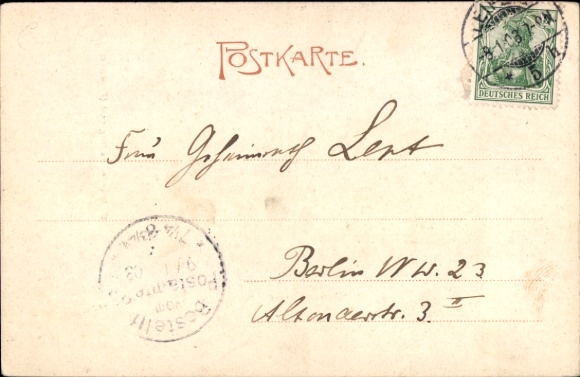 POSTKARTE.
DEUTSCHES REICH
Frau Geheimrath Lent
Berlin NW. 23
Altonaerstr. 3 II
Bestellt
vom
Postamte